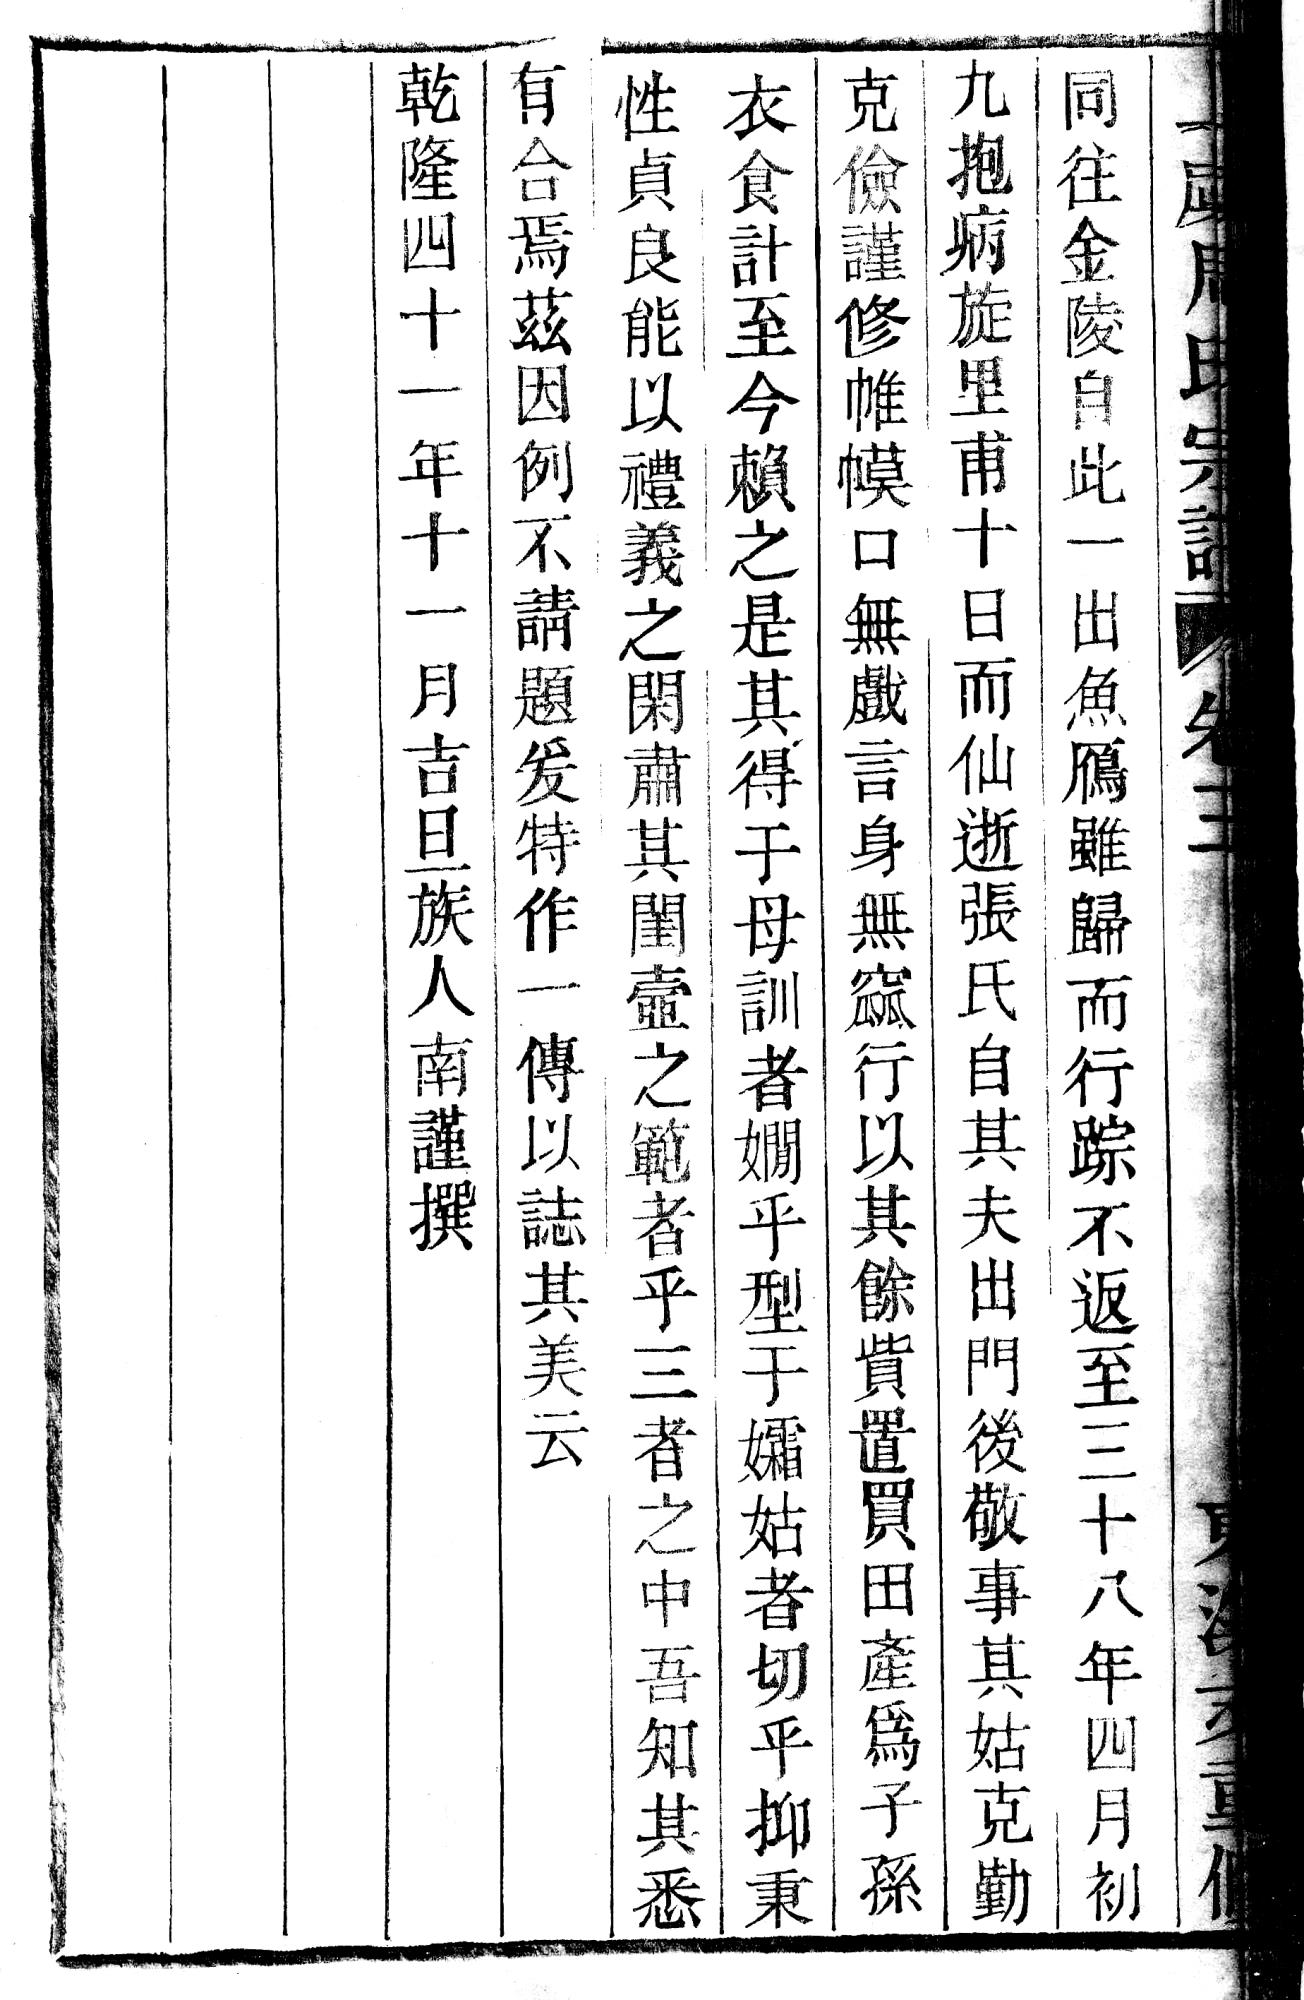 同往金陵自此一出魚鴈雖歸而行踪不返至三十八年四月初
九抱病旋里甫十日而仙逝張氏自其夫出門後敬事其姑克勤
克儉謹修帷幙口無戲言身無窳行以其餘貲置買田產爲子孫
衣食計至今賴之是其得于母訓者嫺乎型于孀姑者切乎抑秉
性貞良能以禮義之閑肅其閨壼之範者乎三者之中吾知其悉
有合焉茲因例不請題爰特作一傳以誌其美云
乾隆四十一年十一月吉旦族人南謹撰